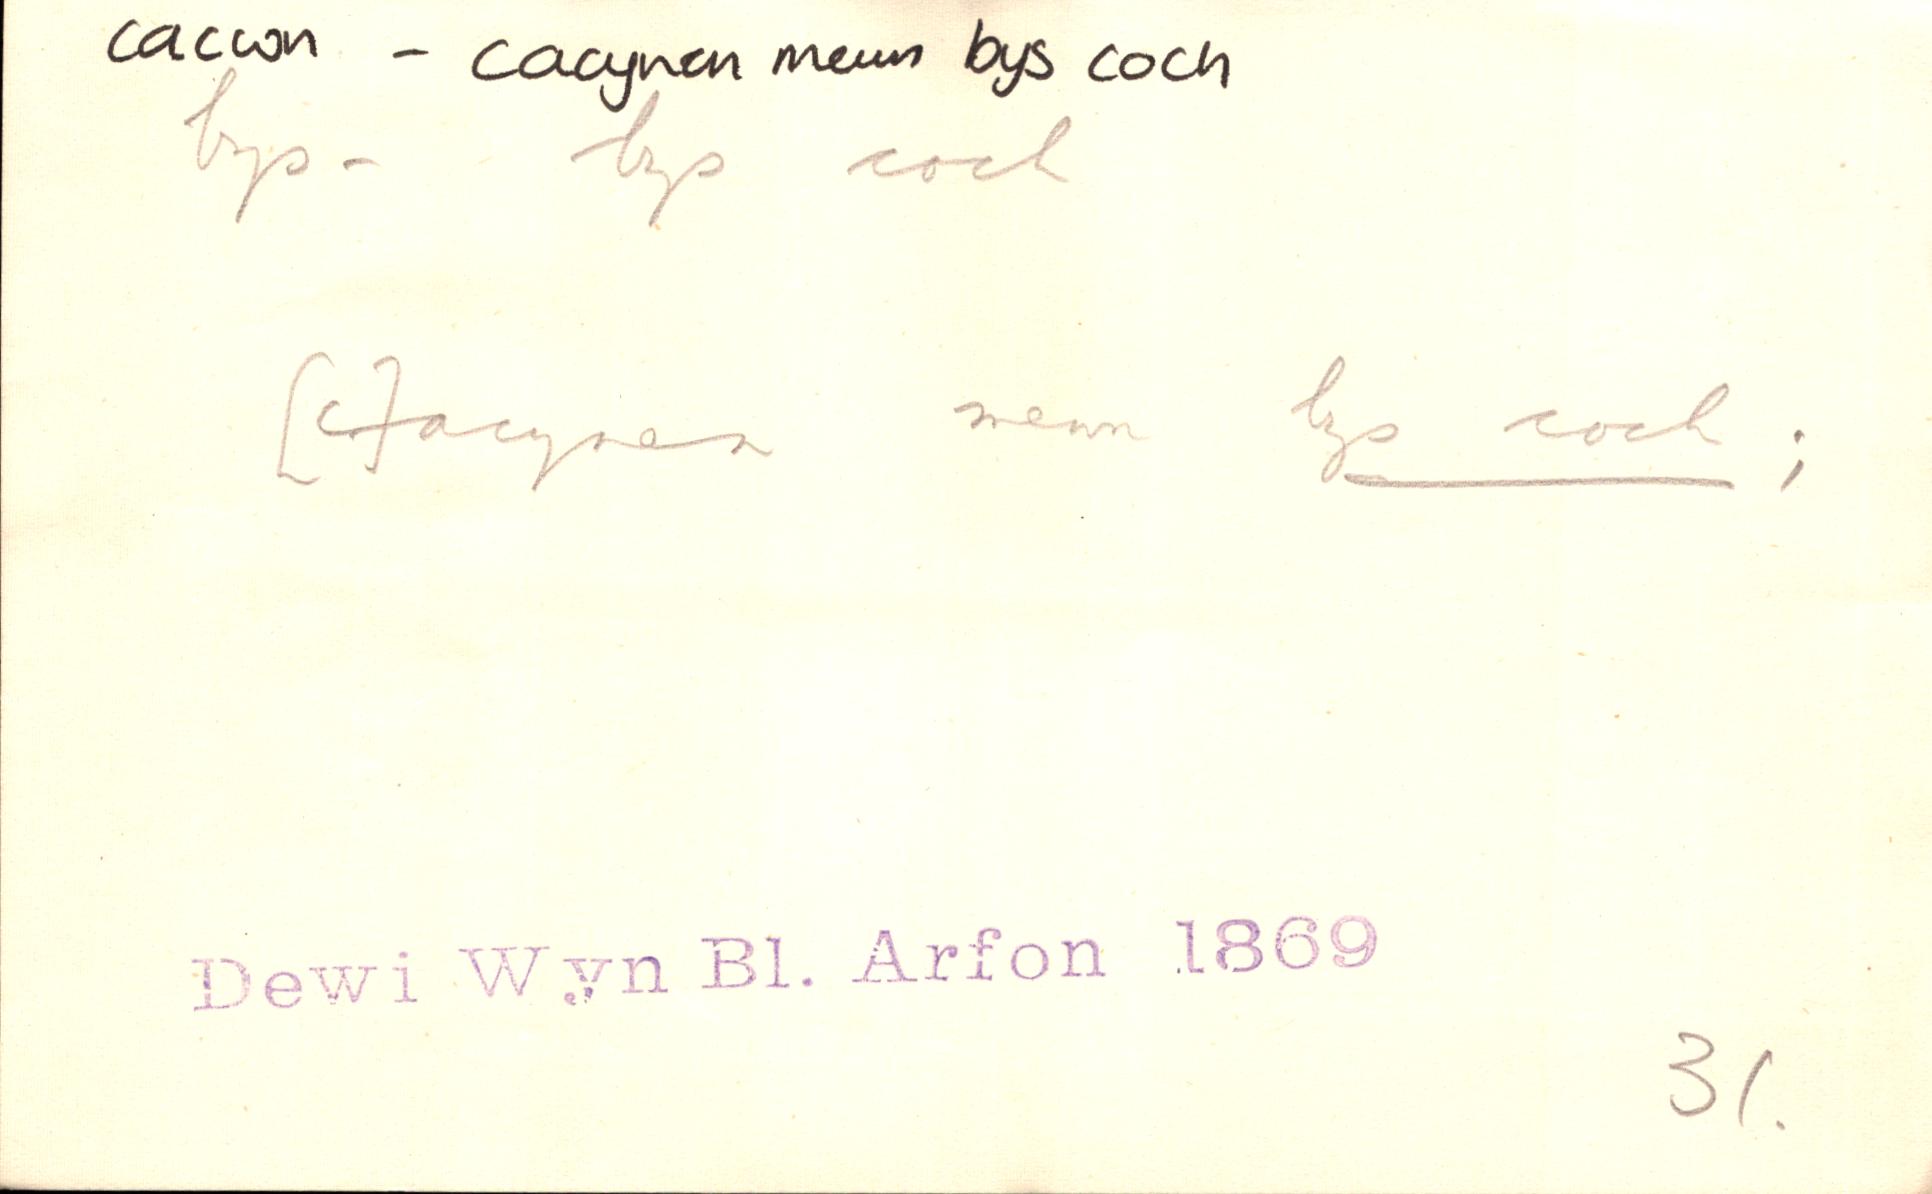 cacwn - cacynen mewn bys coch
bys - bys coch
[c]acynen mewn bys coch ;
Dewi Wyn Bl. Arfon 1869
31.